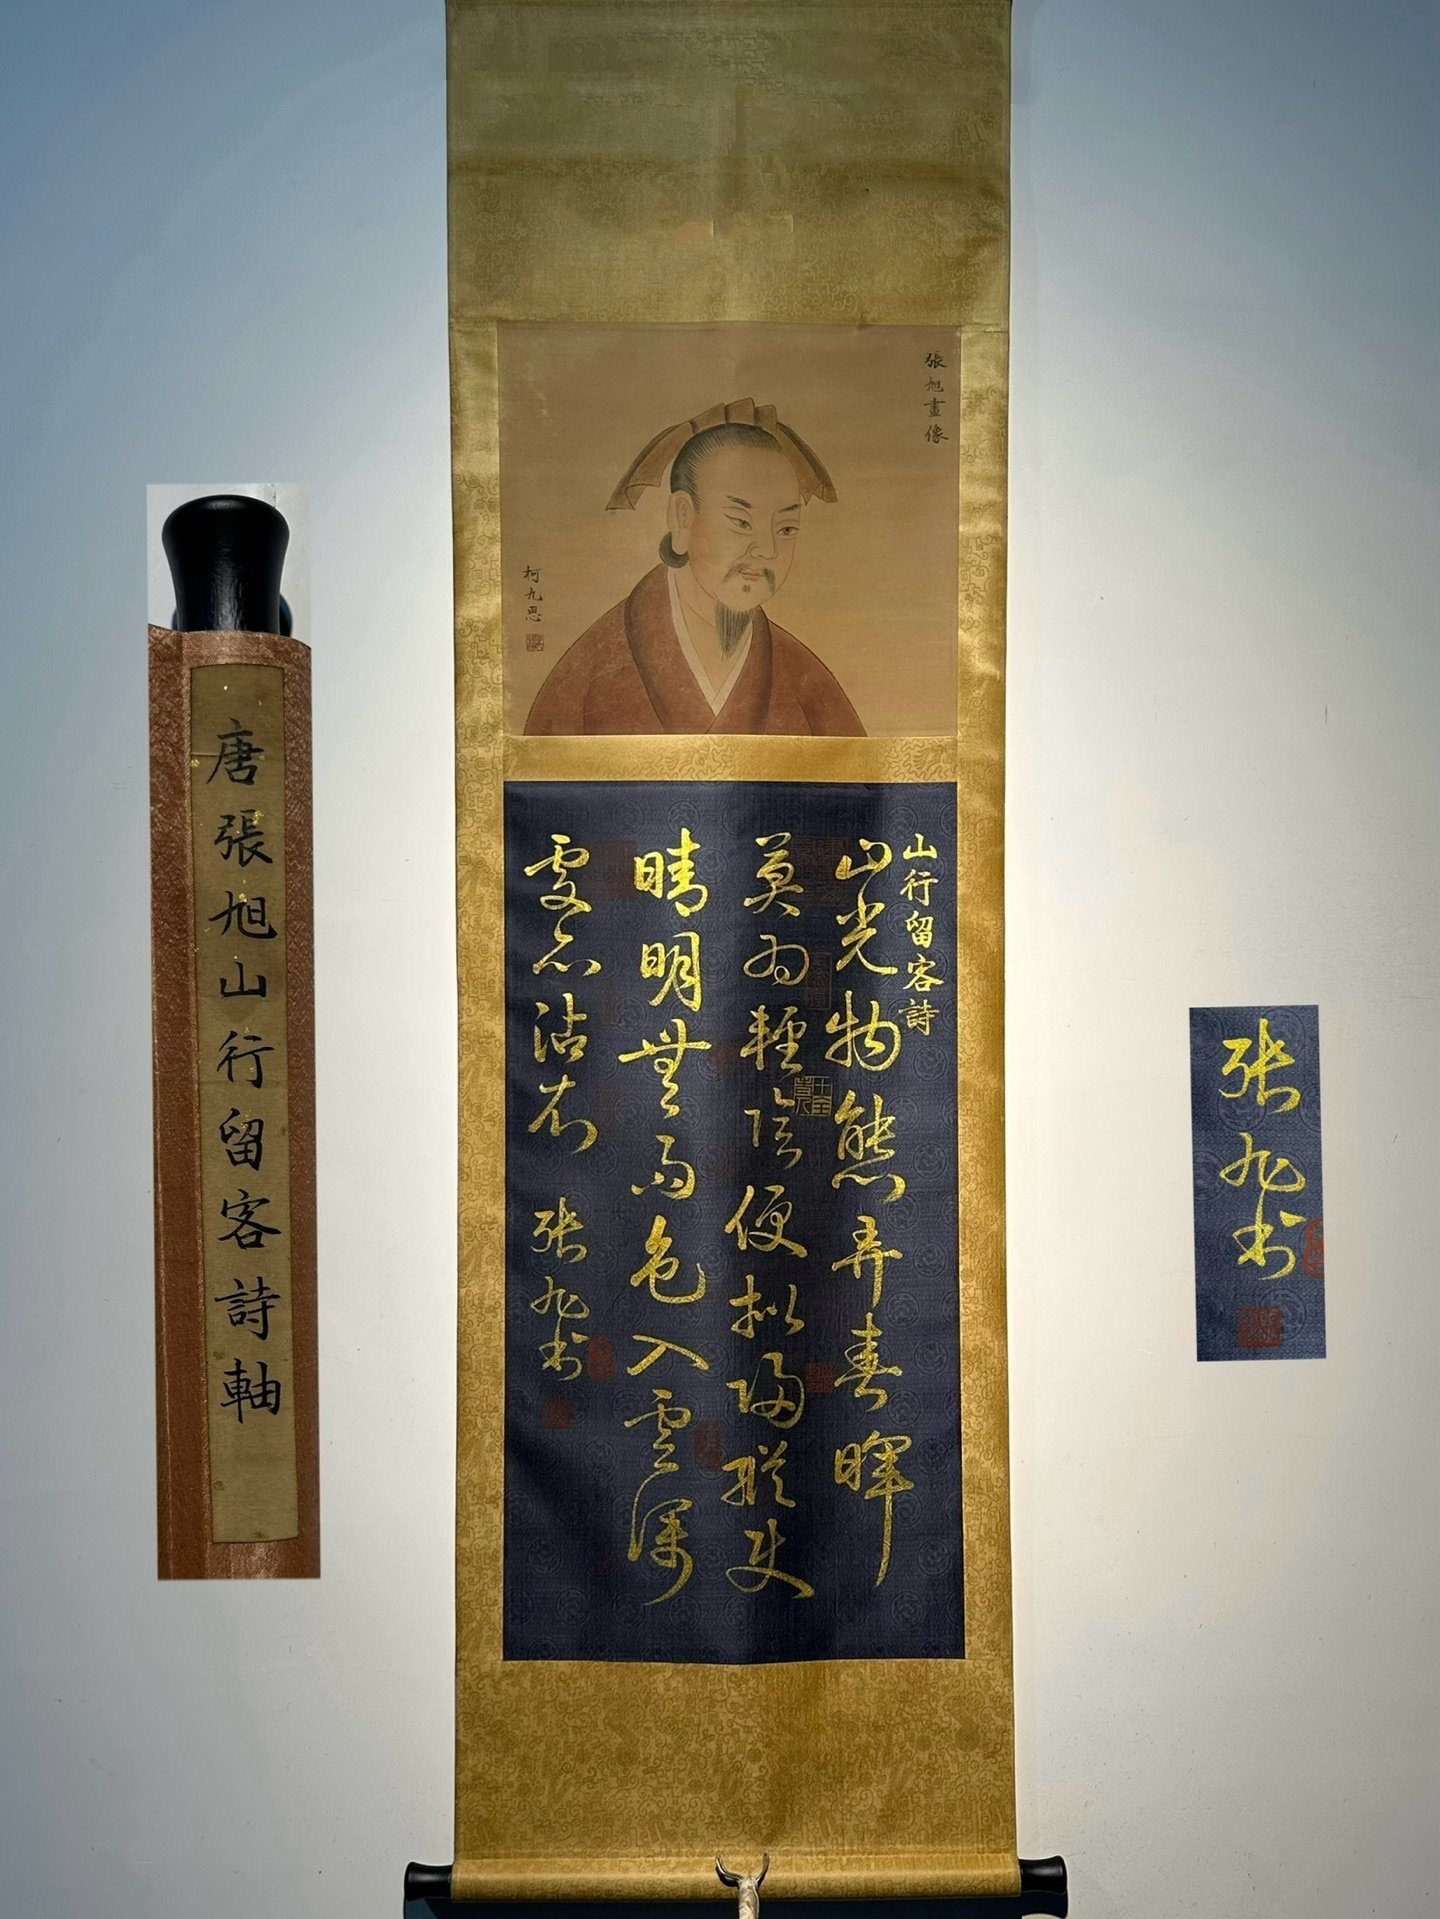 張旭畫像
柯九思
山行留客詩
山光物態弄春暉
莫為輕陰便擬歸縱使
晴明無雨色入雲深
處亦沾衣 張旭書
唐張旭山行留客詩軸
張旭書